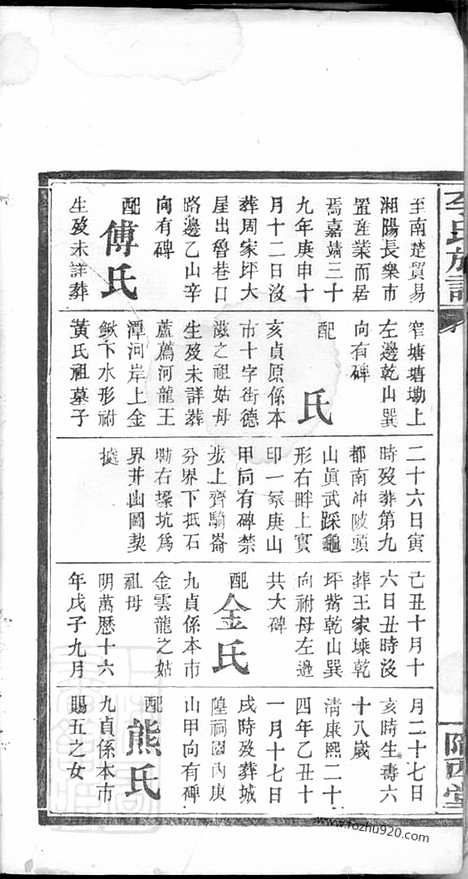 李氏族譜
隴西堂
至南楚貿易
湘陽長樂市
置産業而居
焉嘉靖三十
九年庚申十
月十二日没
葬周家坪大
屋出魯巷口
路邊乙山辛
向有碑
配傅氏
生歿未詳葬
窄塘塘坳上
左邊乾山巽
向有碑
配
氏
亥貞原係本
市十字街德
滋之祖姑母
生歿未詳葬
蘆薦河龍王
潭河岸上金
鰍下水形祔
黃氏祖墓子
二十六日寅
時歿葬第九
都南冲陂頭
山眞武踩龜
形右畔上實
印一冢庚山
甲向有碑禁
步上齊騎崙
分界下抵石
墈右㨿坑爲
界井幽圖契
據
己丑十月十
六日丑時没
葬王家垜乾
坪觜乾山巽
向祔母左邊
共大碑
配金氏
九貞係本市
金雲龍之姑
祖母
明萬歴十六
年戊子九月
月二十七日
亥時生壽六
十八歲
清康熙二十
四年乙丑十
一月十七日
戌時歿葬城
隍祠園内庚
山甲向有碑
配熊氏
九貞係本市
賜五之女
www.fozhu920.com